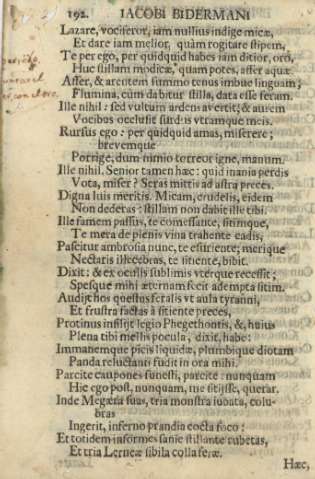 192. IACOBI BIDERMANI
Lazare, vociferor, iam nullius indige micæ,
Et dare iam melior, quàm rogitare stipem,
Te per ego, per quidquid habes iam ditior, oro,
Huc stillam modicæ, quàm potes, affer aquæ.
Affer, & arentem summo tenus imbue linguam;
Flumina, cùm dabitur stilla, data esse feram.
Ille nihil: sed vultum ardens avertit; & aurem
Vocibus occlusit surdus vtramque meis.
Rursus ego: per quidquid amas, miserere;
brevemque
Porrige, dum nimio torreor igne, manum.
Ille nihil. Senior tamen hæc: quid inania perdis
Vota, miser? Seras mittis ad astra preces.
Digna luis meritis. Micam, crudelis, eidem
Non dederas: stillam non dabit ille tibi.
Ille famem passus, te comessante, sitimque,
Te mera de plenis vina trahente cadis,
Pascitur ambrosia nunc, te esuriente; merique
Nectaris illecebras, te sitiente, bibit.
Dixit: & ex oculis sublimis vterque recessit;
Spesque mihi æternam fecit adempta sitim.
Audijt hos questus feralis vt aula tyranni,
Et frustra factas à sitiente preces,
Protinus insilijt legio Phegethontis, & huius
Plena tibi mellis pocula, dixit, habe:
Immanemque picis liquidæ, plumbique diotam
Panda reluctanti fudit in ora mihi.
Parcite caupones funesti, parcite: nunquam
Hic ego post, nunquam, me sitijsse, querar.
Inde Megæra suas, tria monstra iubata, colu-
bras
Ingerit, inferno prandia cocta foco:
Et totidem informes sanie stillante rubetas,
Et tria Lerneæ sibila colla feræ.
Hæc,